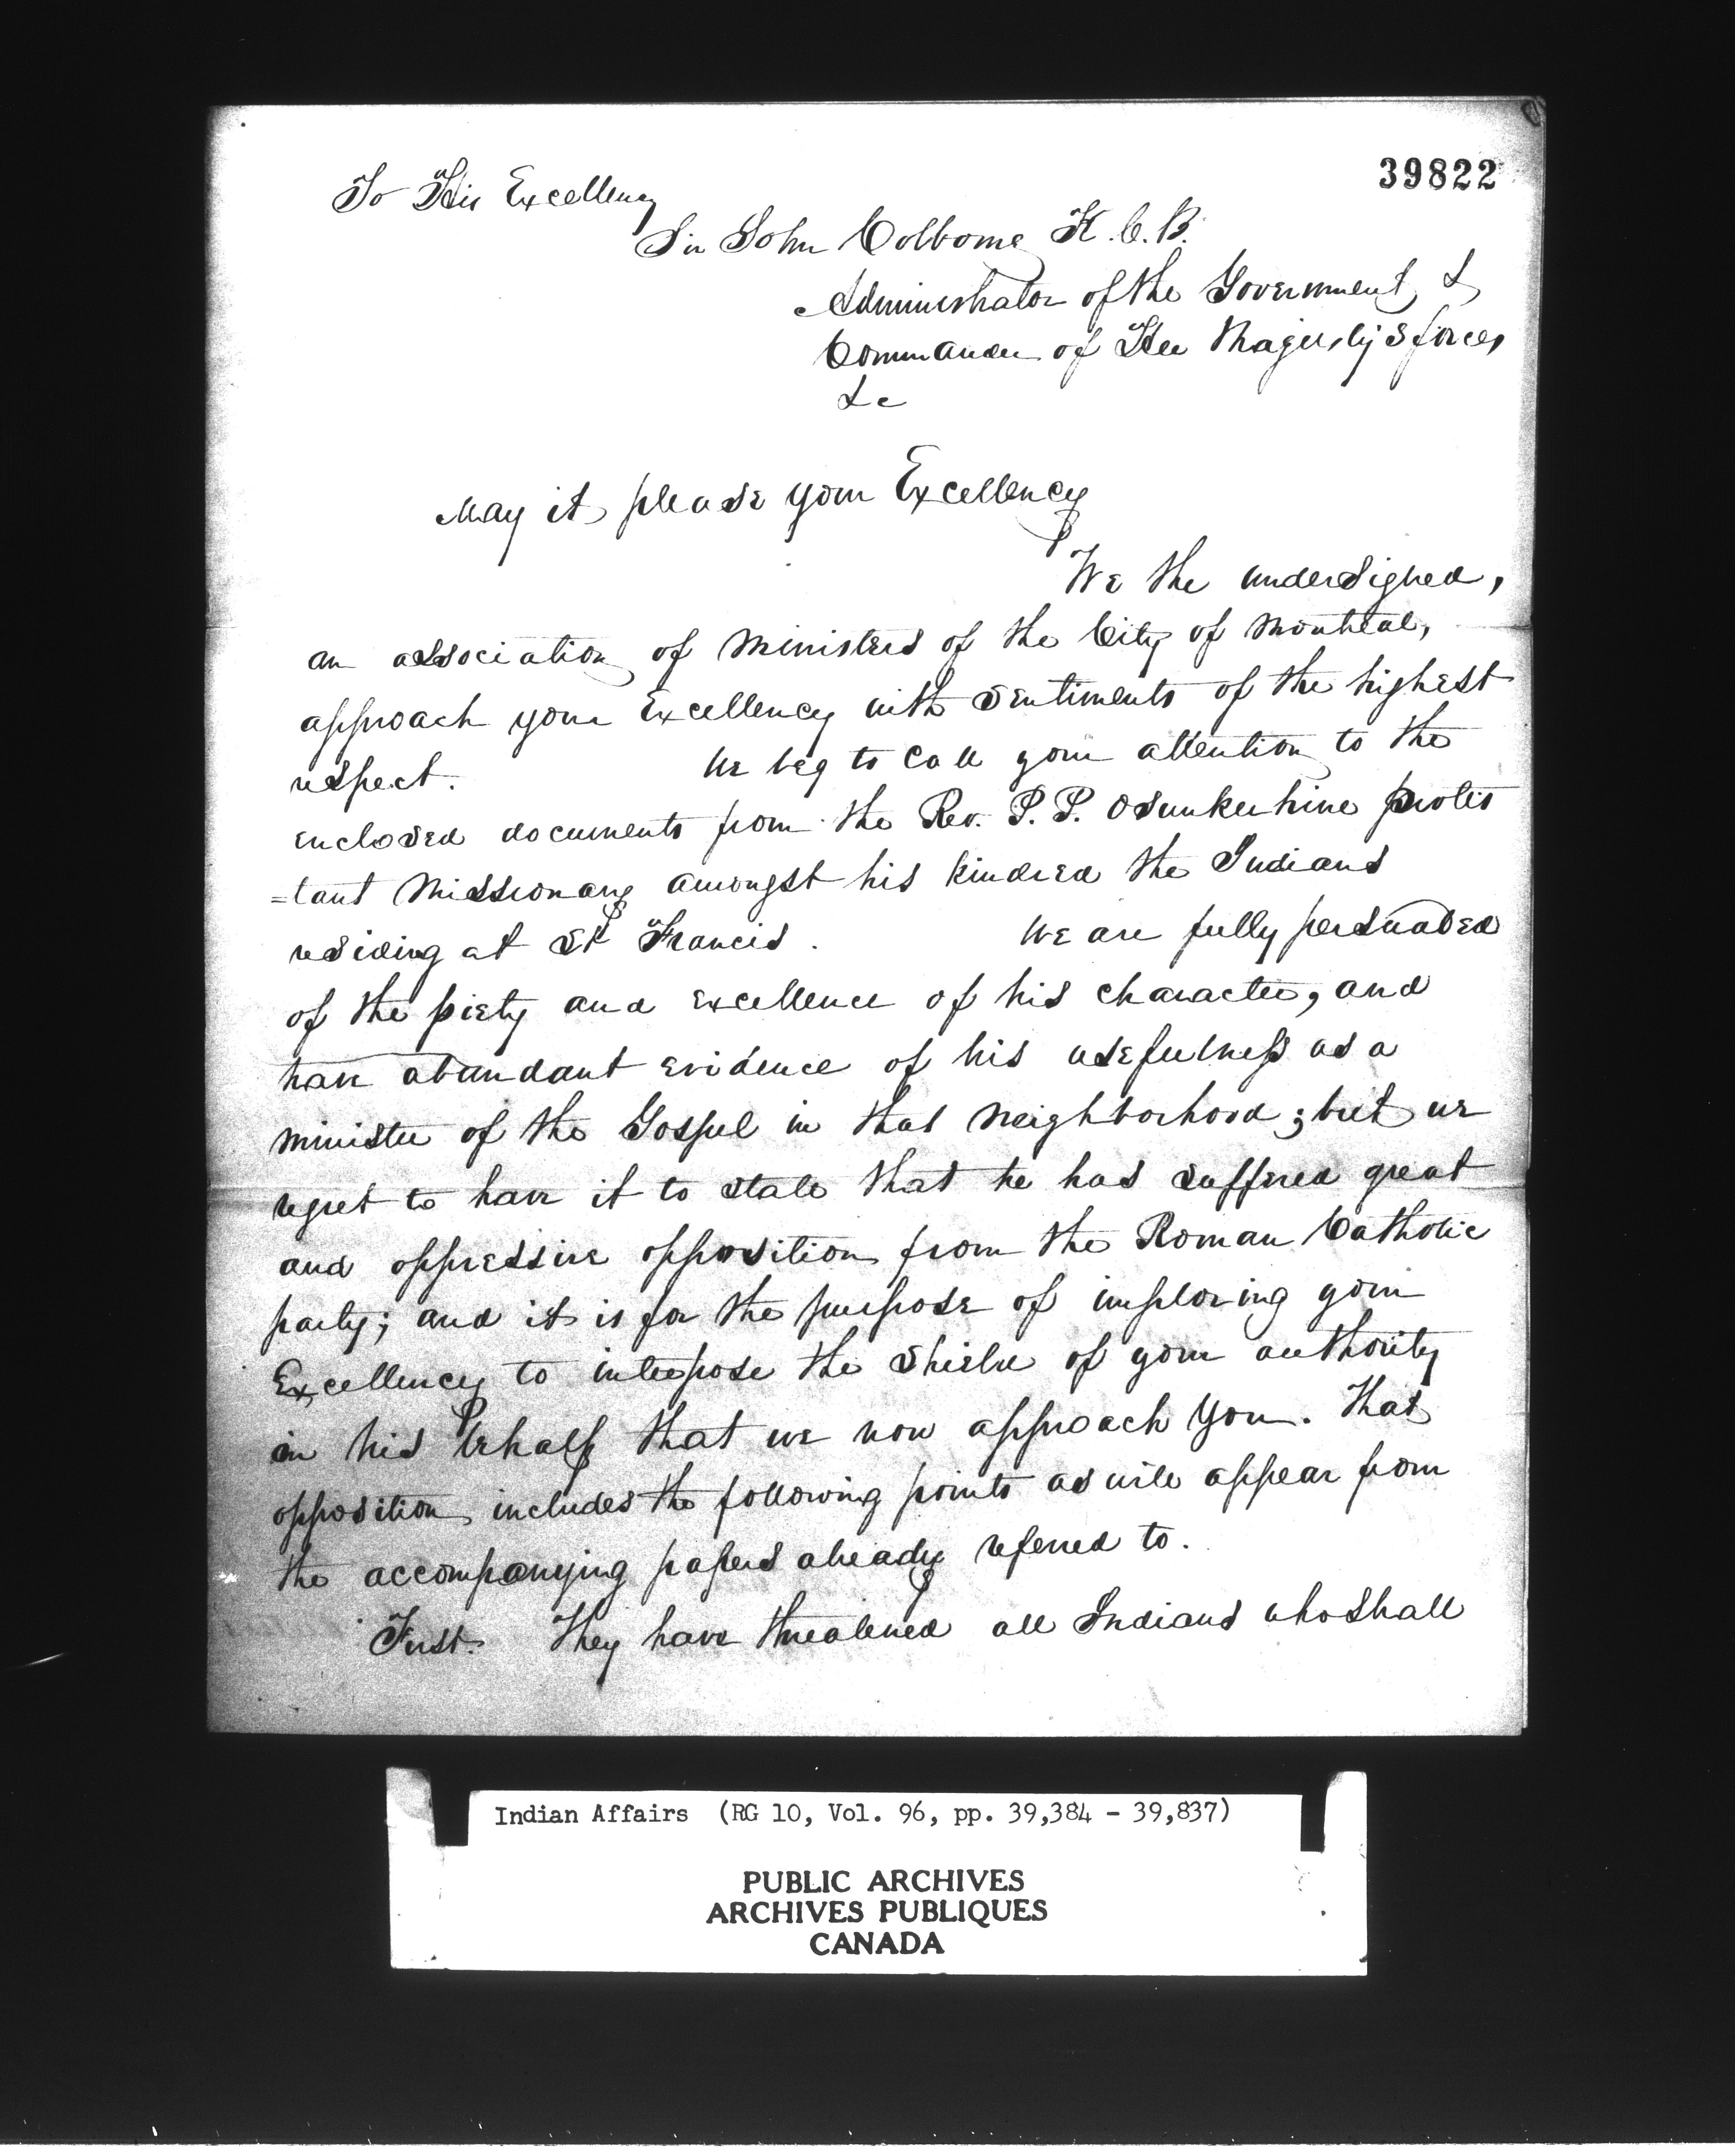 39822
To His Excellency
Sir John Colborne K.C.B.
Administrator of the Government &
Commander of Her Majesty's forces
&c
May it please your Excellency
We the undersigned,
an association of Ministers of the City of Montreal,
approach your Excellency with sentiments of the highest
respect. We beg to call your attention to the
enclosed documents from the Rev. P. P. Osunkerhine protes
=tant Missionary amongst his kindred the Indians
residing at St Francis. We are fully persuaded
of the piety and excellence of his character, and
have abundant evidence of his usefulness as a
minister of the Gospel in that neighborhood; but we
regret to have it to state that he has suffered great
and oppressive opposition from the Roman Catholic
party; and it is for the purpose of imploring your
Excellency to interpose the shield of your authority
in his behalf that we now approach you. That
opposition includes the following points as will appear from
the accompanying papers already referred to.
First. They have threatened all Indians who shall
Indian Affairs (RG 10, Vol. 96, pp. 39,384 - 39,837)
PUBLIC ARCHIVES
ARCHIVES PUBLIQUES
CANADA